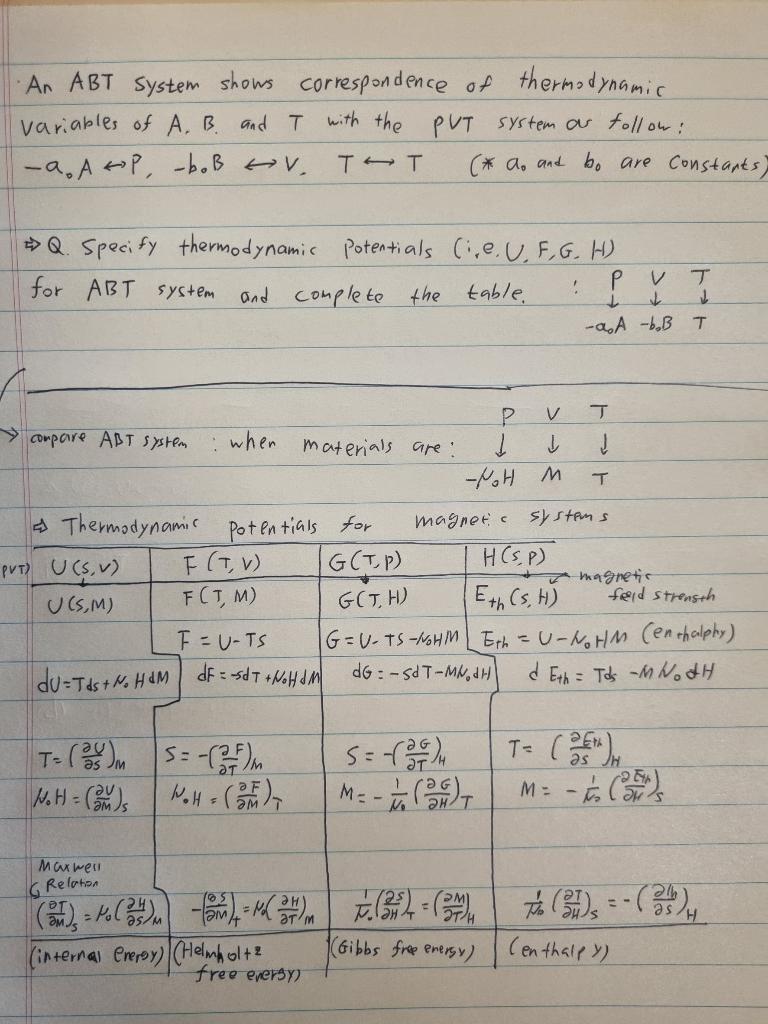 An ABT System shows correspondence of thermodynamic
variables of A, B. and T with the PVT system as follow:
-a₀A ↔ P, -b₀B ↔ V, T ↔ T (* a₀ and b₀ are constants)
⇒ Q. Specify thermodynamic potentials (i.e. U, F, G, H)
for ABT system and complete the table. : P V T
↓ ↓ ↓
-a₀A -b₀B T
P V T
→ compare ABT system : when materials are : ↓ ↓ ↓
-μ₀H M T
⇒ Thermodynamic potentials for magnetic systems
PVT) U(S,V) F(T,V) G(T,P) H(S,P)
U(S,M) F(T,M) G(T,H) Eth(S,H) magnetic field strength
F = U-TS G = U-TS-μ₀HM Eth = U-μ₀HM (enthalphy)
dU = Tds + μ₀HdM dF = -SdT + μ₀HdM dG = -SdT - Mμ₀dH d Eth = Tds - Mμ₀dH
T = (∂U/∂S)M S = -(∂F/∂T)M S = -(∂G/∂T)H T = (∂Eth/∂S)H
μ₀H = (∂U/∂M)S μ₀H = (∂F/∂M)T M = -1/μ₀ (∂G/∂H)T M = -1/μ₀ (∂Eth/∂H)S
Maxwell
Relation
(∂T/∂M)S = μ₀(∂H/∂S)M -(∂S/∂M)T = μ₀(∂H/∂T)M 1/μ₀ (∂S/∂H)T = (∂M/∂T)H 1/μ₀ (∂T/∂H)S = -(∂M/∂S)H
(internal energy) (Helmholtz (Gibbs free energy) (enthalpy)
free energy)